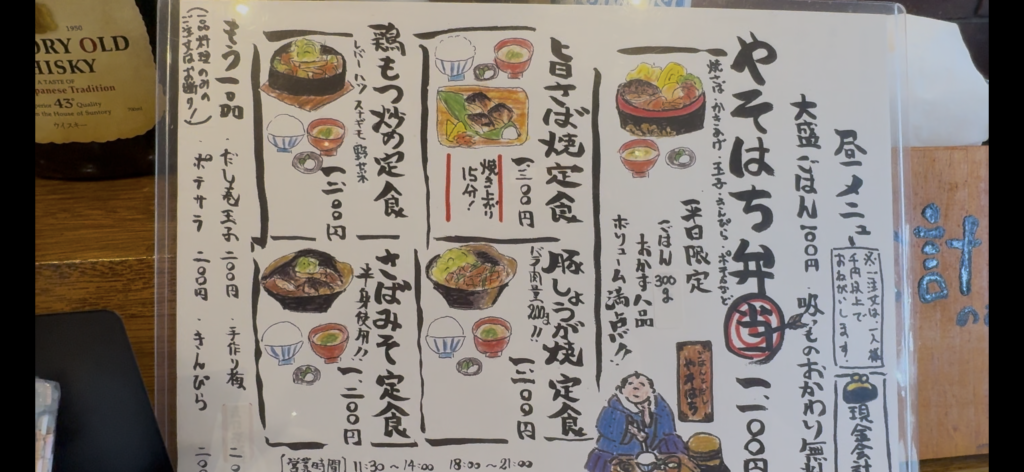 昼メニュー
※ご注文は、一人様
千円以上で
お願いします。
現金会計
大盛ごはん100円・吸いものおかわり無料
やそはち弁当 一、一〇〇円
焼さば・かきあげ・玉子・きんぴら・ポテサラなど
平日限定
ごはん300g
おかず八品
ボリューム満点バケ!
旨さば焼定食
一、三〇〇円
焼き上がり
15分!
豚しょうが焼定食
バラ肉量200g!!
一、二〇〇円
鶏もつ炒め定食
レバー・ハツ・スナギモ・野セネ
一、二〇〇円
さばみそ定食
半身使用!!
一、二〇〇円
もう一品
(一品料理のみの
ご注文はお断り!)
・だし巻玉子 二〇〇円
・ポテサラ 二〇〇円
・きんぴら 二〇
[営業時間] 11:30～14:00 18:00～21:00
やそはち
1950
ORY OLD
HISKY
A TASTE OF
Japanese Tradition
43° Quality
from the House of Suntory
ウイスキー
計
の